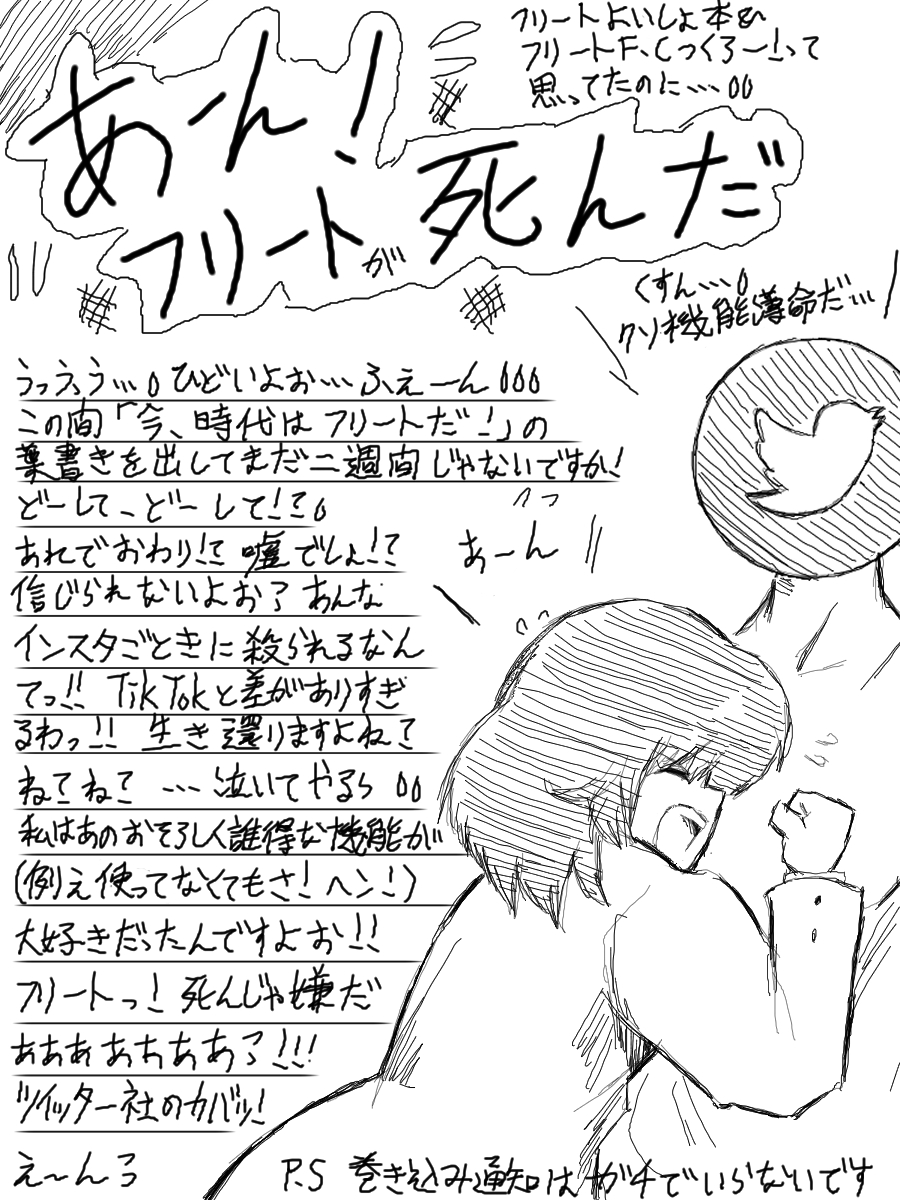 フリートよいしょ本&
フリートF.Cつくろー!って
思ってたのに…
あーん!
フリートが死んだ
くすん…
クソ機能薄命だ…
うっうっう…ひどいよお…ふえーん
この間「今、時代はフリートだ!」の
葉書きを出してまだ二週間じゃないですか!
どーして、どーして!?
あれでおわり!? 嘘でしょ!?
信じられないよお? あんな
インスタごときに殺られるなん
てっ!! TikTokと差がありすぎ
るわっ!! 生き還りますよね?
ね?ね? …泣いてやるぅ
私はあのおそろしく誰得な機能が
(例え使ってなくてもさ!ヘン!)
大好きだったんですよお!!
フリートっ! 死んじゃ嫌だ
ああああああっ!!!
ツイッター社のカバッ!
え~んっ
あーん
P.S 巻き込み通知はガチでいらないです